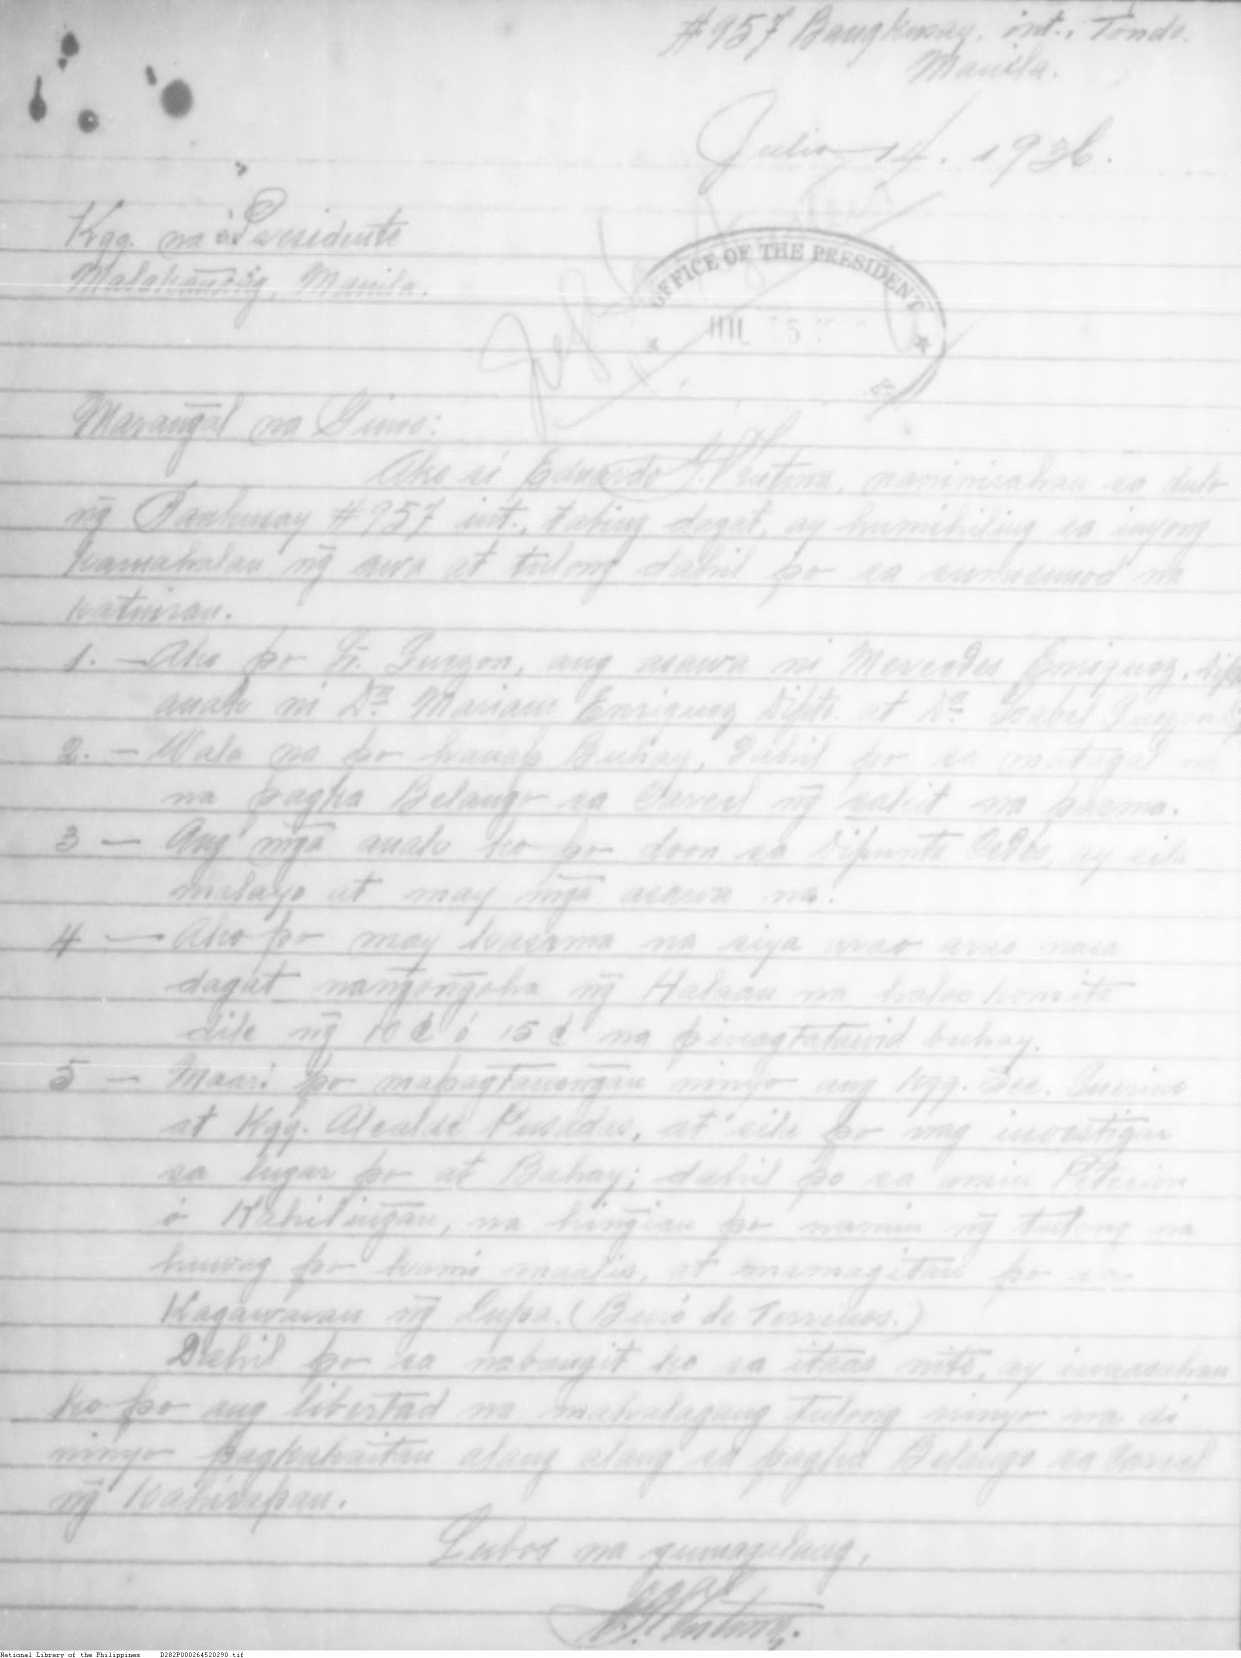 #957 Bangkusay, int., Tondo.
Manila.
Julio 14. 1936.
Kgg. na Presidente
Malakanang, Manila.
OFFICE OF THE PRESIDENT
JUL 15
Marangal na Ginoo:
Ako si Eduardo, naninirahan sa dulo
ng Bankusay #957 int., tabing dagat, ay humihiling sa inyong
kamahalan ng awa at tulong dahil po sa sumusunod na
katuiran.
1. — Ako po Sr. Quezon, ang asawa ni Mercedes Enriquez,
anak ni Dn Mariano Enriquez Difte. at Da Isabel Quezon
2. — Wala na po hanap Buhay, Dahil po sa matagal na
na pagka Belango sa Carcel ng sakit na pasma.
3 — Ang mga anak ko po doon sa Difunta, ay sila
malayo at may mga asawa na.
4 — Ako po may kasama na siya araw araw nasa
dagat nangunguha ng Halaan na
sila ng 10¢ ó 15¢ na pinagtatawid buhay.
5 — Maari po mapagtanungan ninyo ang Kgg. Sec. Quirino
at Kgg. Alcalde Posadas, at sila po nag investigar
sa lugar po at Bahay; dahil po sa amin Peticion
ó Kahilingan, na hingian po namin ng tulong na
huwag po kami maalis, at mamagitan po sa
Kagawaran ng Lupa. (Buró de Terrenos.)
Dahil po sa nabangit ko sa itaas nito, ay inaasahan
ko po ang libertad na mahalagang tulong ninyo na di
ninyo pagkakaitan alang alang sa pagka Belango sa Carcel
ng Kahirapan.
Lubos na gumagalang,